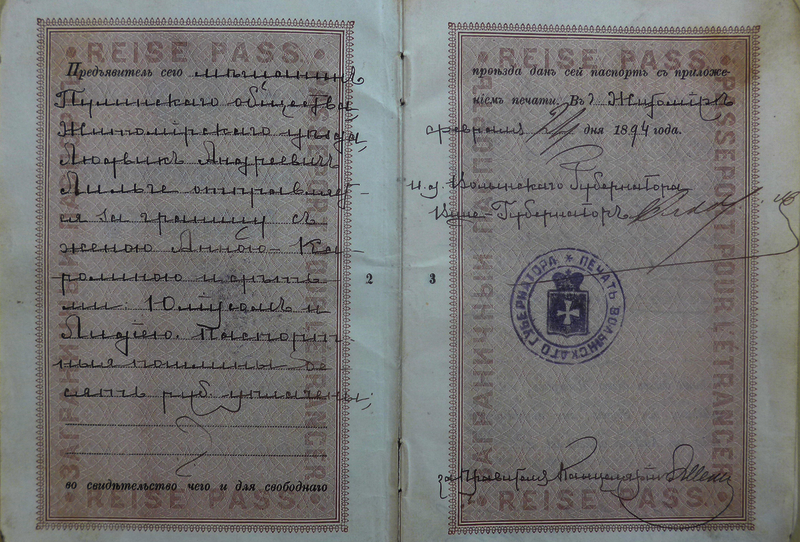 REISE PASS.
Предъявитель сего мѣщанинъ
Пулинскаго общества
Житомірскаго уѣзда,
Людвикъ Андреевичъ
отправляет-
ся за границу съ
женою Анною-Ка-
ролиною и дѣтъ-
ми: Юліусомъ и
Лидіею. Паспорт-
ныя пошлины де-
сять руб. уплачены,
во свидѣтельство чего и для свободнаго
REISE PASS.
ЗАГРАНИЧНЫЙ ПАСПОРТЪ
PASSEPORT POUR L'ÉTRANGER
2
REISE PASS.
проѣзда данъ сей паспортъ съ приложе-
ніемъ печати. Въ г. Житомірѣ
февраля дня 1894 года.
и. д. Волынскаго Губернатора
Вице-Губернаторъ
3
ПЕЧАТЬ ВОЛЫНСКАГО ГУБЕРНАТОРА *
за Правителя Канцеляріи
REISE PASS.
ЗАГРАНИЧНЫЙ ПАСПОРТЪ
PASSEPORT POUR L'ÉTRANGER